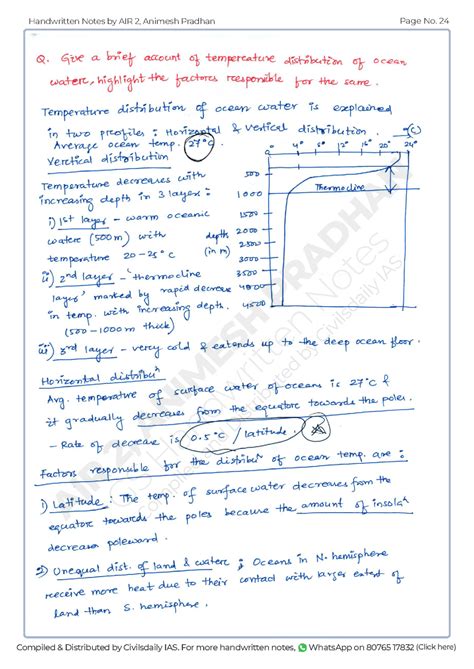 Handwritten Notes by AIR 2, Animesh Pradhan Page No. 24
Q. Give a brief account of temperature distribution of ocean
water, highlight the factors responsible for the same.
Temperature distribution of ocean water is explained
in two profiles : Horizontal & Vertical distribution.
Average ocean temp. 27°C
Vertical distribution
Temperature decreases with
increasing depth in 3 layers :
i) 1st layer - warm oceanic
water (500m) with
temperature 20-25°C
ii) 2nd layer - thermocline
layer' marked by rapid decrease
in temp. with increasing depth.
(500-1000m thick)
(°C)
0° 4° 8° 12° 16° 20° 24°
500
1000
Thermocline
1500
depth 2000
(in m) 2500
3000
3500
4000
4500
iii) 3rd layer - very cold & extends up to the deep ocean floor.
Horizontal distribuⁿ
Avg. temperature of surface water of oceans is 27°C &
it gradually decreases from the equator towards the poles.
- Rate of decrease is 0.5°C / latitude.
Factors responsible for the distribuⁿ of ocean temp. are :
1) Latitude : The temp. of surface water decreases from the
equator towards the poles because the amount of insolaⁿ
decreases poleward.
2) Unequal dist. of land & water : Oceans in N. hemisphere
receive more heat due to their contact with larger extent of
land than S. hemisphere.
AIR 2, ANIMESH PRADHAN
Handwritten Notes
Compiled & Distributed by Civilsdaily IAS
Compiled & Distributed by Civilsdaily IAS. For more handwritten notes, WhatsApp on 80765 17832 (Click here)